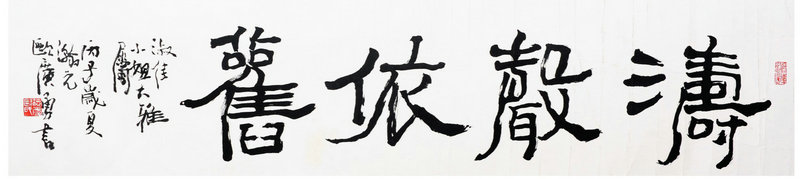 濤聲依舊
淑佳
小姐大雅
屬
丙子歲夏
歐廣勇書